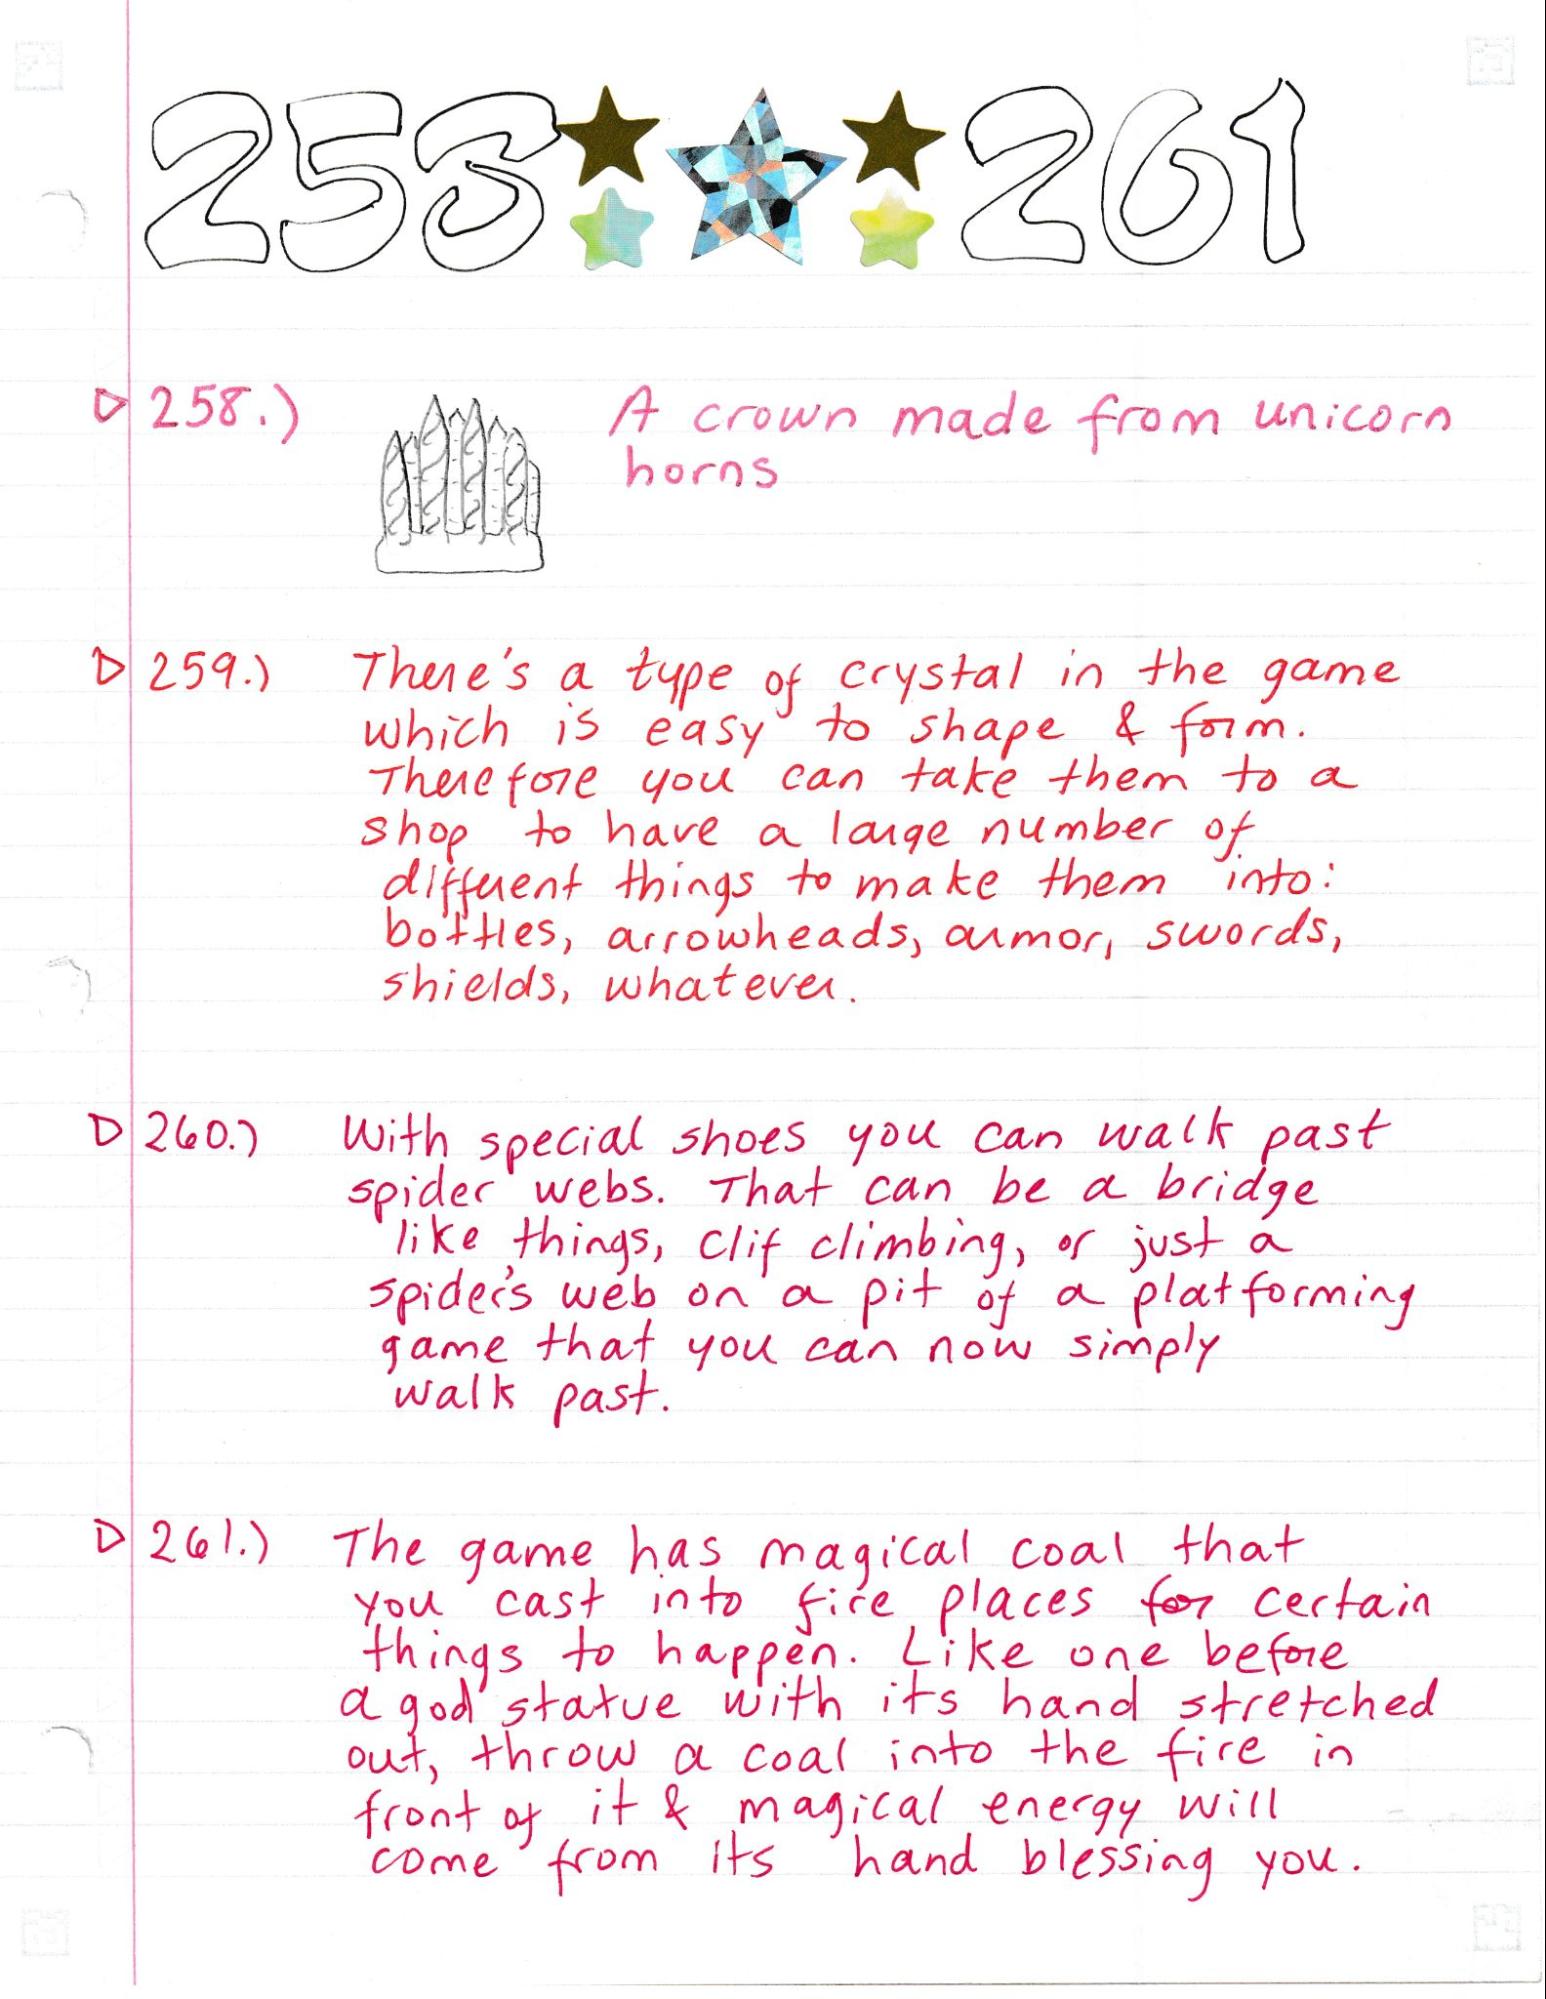 258 261
258.) A crown made from unicorn
horns
259.) There's a type of crystal in the game
which is easy to shape & form.
Therefore you can take them to a
shop to have a large number of
different things to make them into:
bottles, arrowheads, armor, swords,
shields, whatever.
260.) With special shoes you can walk past
spider webs. That can be a bridge
like things, clif climbing, or just a
spider's web on a pit of a platforming
game that you can now simply
walk past.
261.) The game has magical coal that
you cast into fire places for certain
things to happen. Like one before
a god statue with its hand stretched
out, throw a coal into the fire in
front of it & magical energy will
come from its hand blessing you.